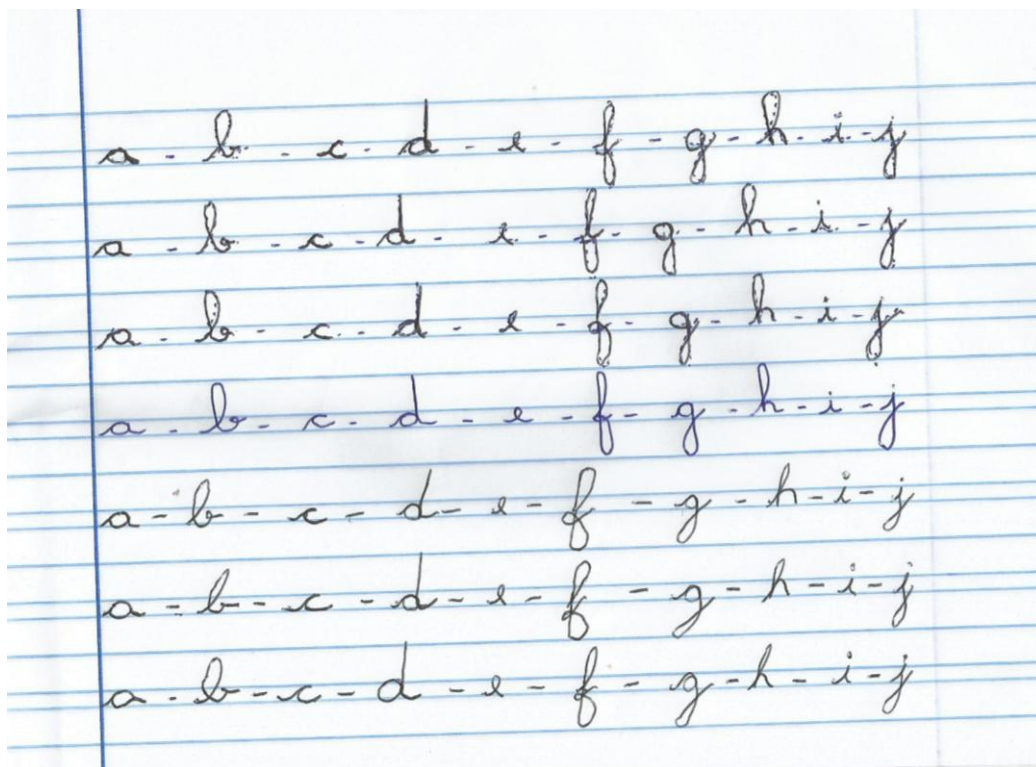 a - b - c - d - e - f - g - h - i - j
a - b - c - d - e - f - g - h - i - j
a - b - c - d - e - f - g - h - i - j
a - b - c - d - e - f - g - h - i - j
a - b - c - d - e - f - g - h - i - j
a - b - c - d - e - f - g - h - i - j
a - b - c - d - e - f - g - h - i - j